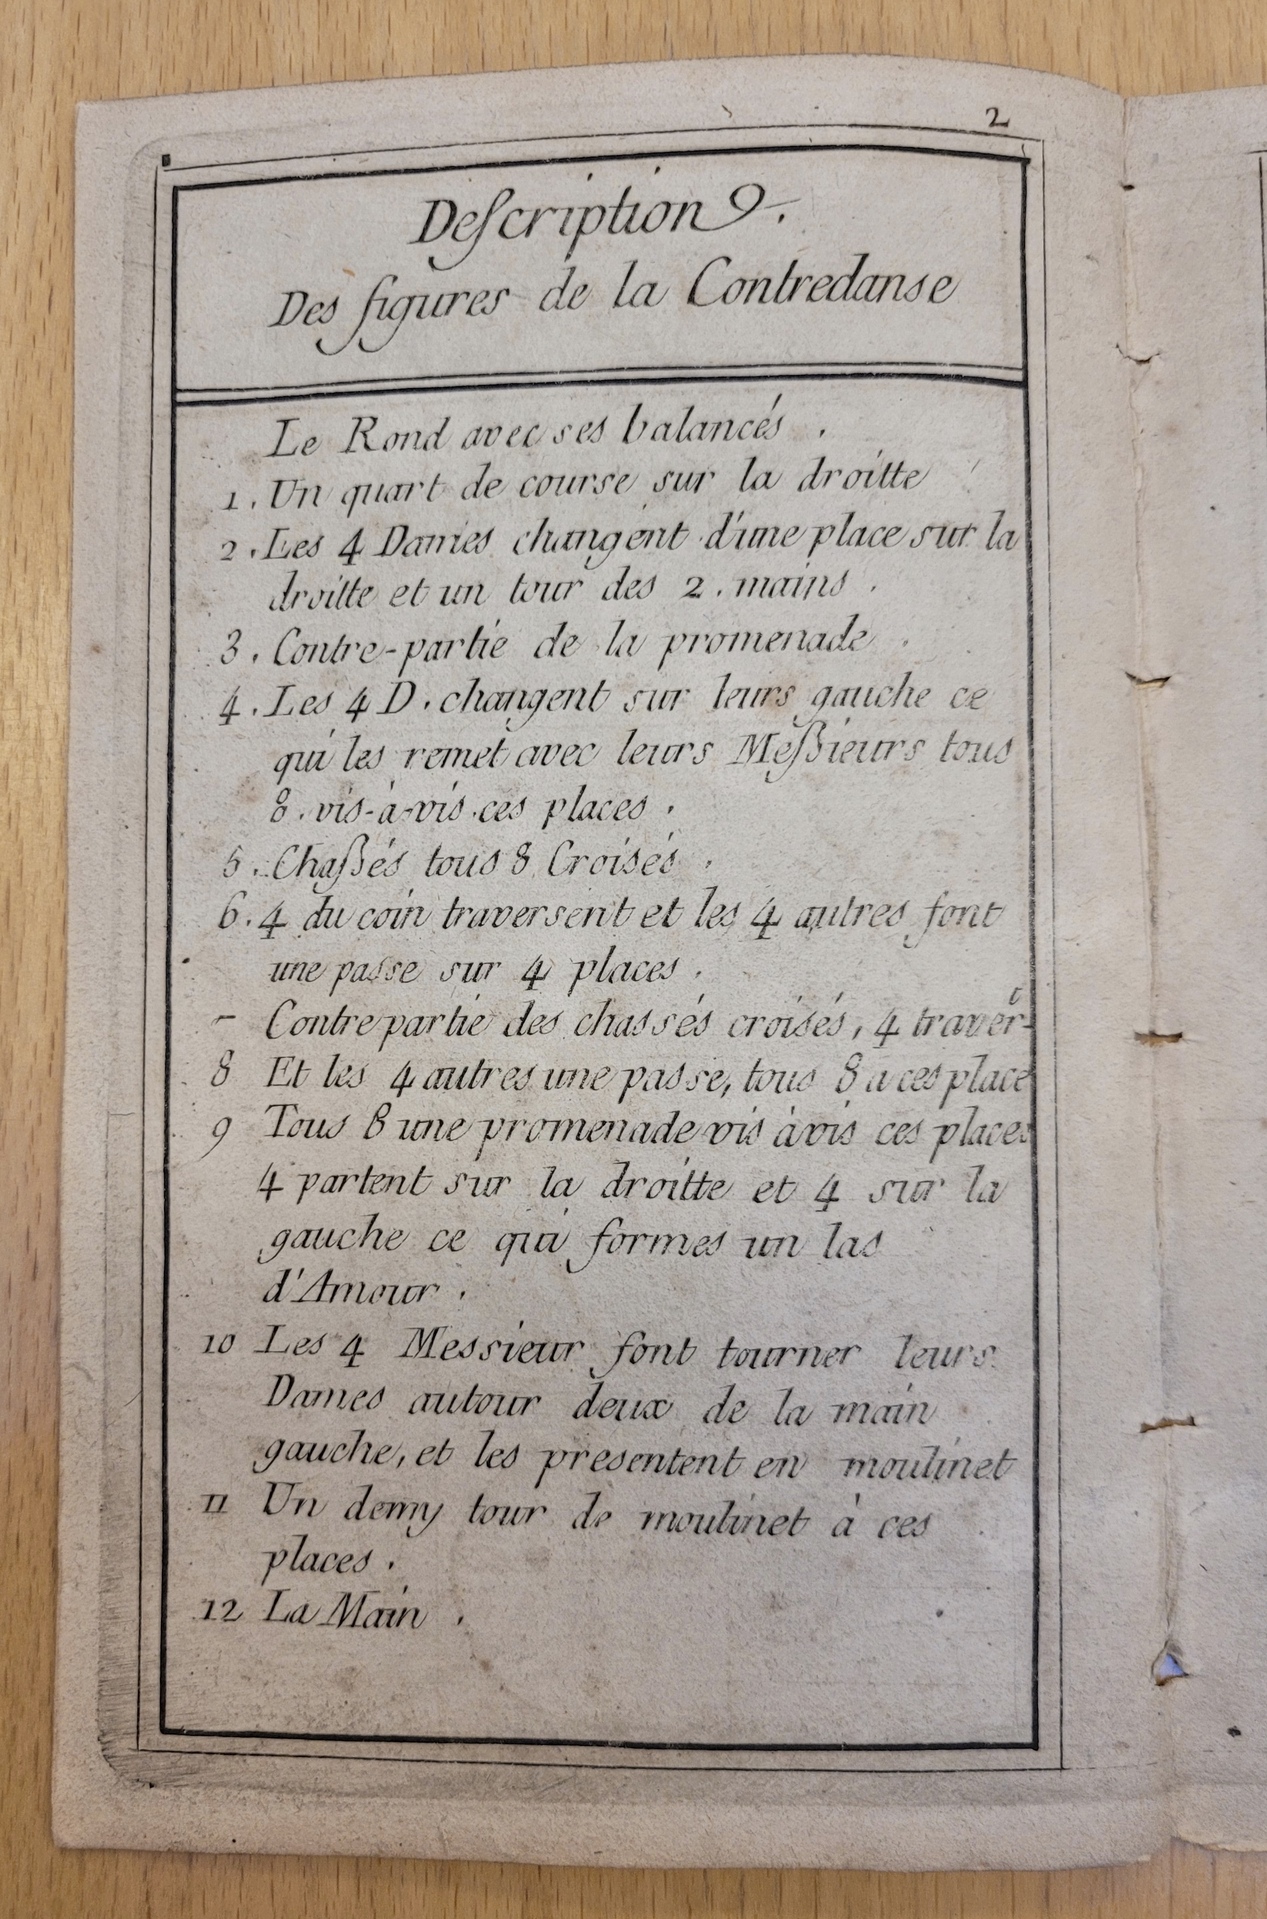 2
Description 9.
Des figures de la Contredanse
Le Rond avec ses balancés .
1. Un quart de course sur la droitte
2. Les 4 Dames changent d'une place sur la
droitte et un tour des 2. mains .
3. Contre-partie de la promenade .
4. Les 4 D. changent sur leurs gauche ce
qui les remet avec leurs Meſsieurs tous
8. vis-à-vis ces places .
5. Chaſsés tous 8 Croisés .
6. 4 du coin traversent et les 4 autres font
une passe sur 4 places .
- Contrepartie des chassés croisés, 4 traver.t
8 Et les 4 autres une passe, tous 8 a ces place
9 Tous 8 une promenade vis àvis ces places
4 partent sur la droitte et 4 sur la
gauche ce qui formes un las
d'Amour .
10 Les 4 Messieur font tourner leurs
Dames autour deux de la main
gauche, et les presentent en moulinet
11 Un demy tour de moulinet à ces
places .
12 La Main .